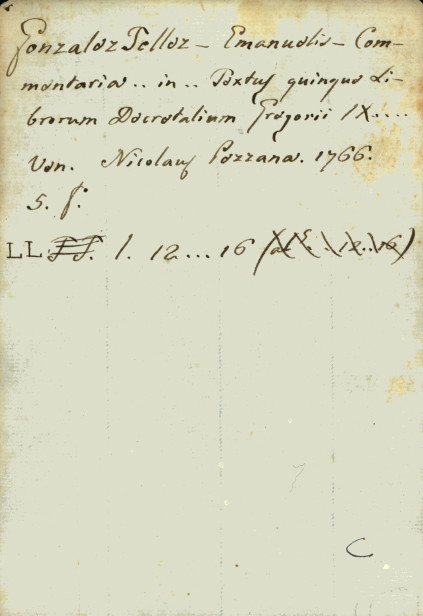 Gonzalez Tellez - Emanuelis - Com-
mentaria .. in .. Textus quinque Li-
brorum Decretalium Gregorii IX....
Ven. Nicolaus Pezzana. 1766.
5. f.
LL. 1. 12 ... 16
C